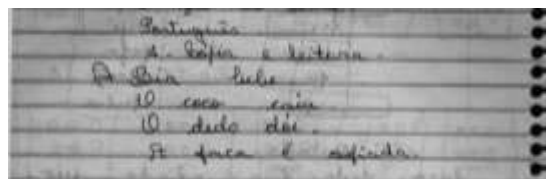 Português
1. Cópia e leitura.
A Bia bebe
O coco caiu
O dedo dói.
A faca é afiada.